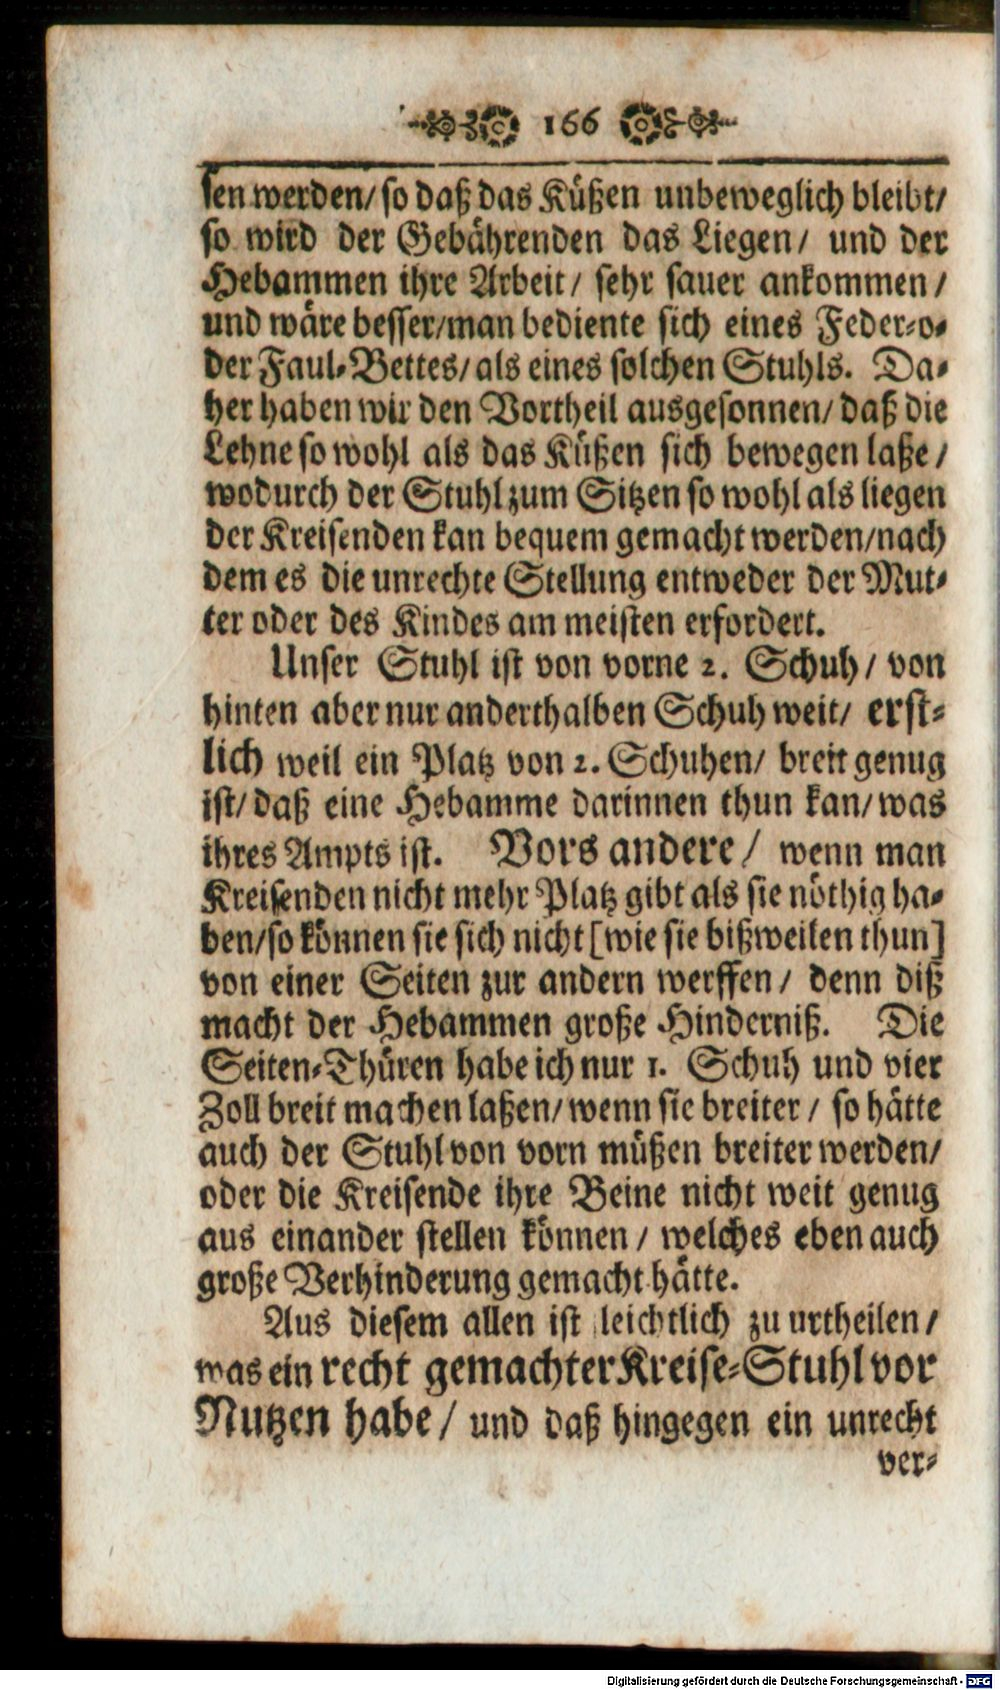 166
sen werden/ so daß das Küßen unbeweglich bleibt/
so wird der Gebährenden das Liegen/ und der
Hebammen ihre Arbeit/ sehr sauer ankommen/
und wäre besser/man bediente sich eines Feder-o-
der Faul-Bettes/ als eines solchen Stuhls. Da-
her haben wir den Vortheil ausgesonnen/ daß die
Lehne so wohl als das Küßen sich bewegen laße/
wodurch der Stuhl zum Sitzen so wohl als liegen
der Kreisenden kan bequem gemacht werden/nach
dem es die unrechte Stellung entweder der Mut-
ter oder des Kindes am meisten erfordert.
Unser Stuhl ist von vorne 2. Schuh/ von
hinten aber nur anderthalben Schuh weit/ erst-
lich weil ein Platz von 2. Schuhen/ breit genug
ist/ daß eine Hebamme darinnen thun kan/ was
ihres Ampts ist. Vors andere/ wenn man
Kreisenden nicht mehr Platz gibt als sie nöthig ha-
ben/so können sie sich nicht [wie sie bißweilen thun]
von einer Seiten zur andern werffen/ denn diß
macht der Hebammen große Hinderniß. Die
Seiten-Thüren habe ich nur 1. Schuh und vier
Zoll breit machen laßen/ wenn sie breiter/ so hätte
auch der Stuhl von vorn müßen breiter werden/
oder die Kreisende ihre Beine nicht weit genug
aus einander stellen können/ welches eben auch
große Verhinderung gemacht hätte.
Aus diesem allen ist leichtlich zu urtheilen/
was ein recht gemachter Kreise-Stuhl vor
Nutzen habe/ und daß hingegen ein unrecht
ver-
Digitalisierung gefördert durch die Deutsche Forschungsgemeinschaft - DFG